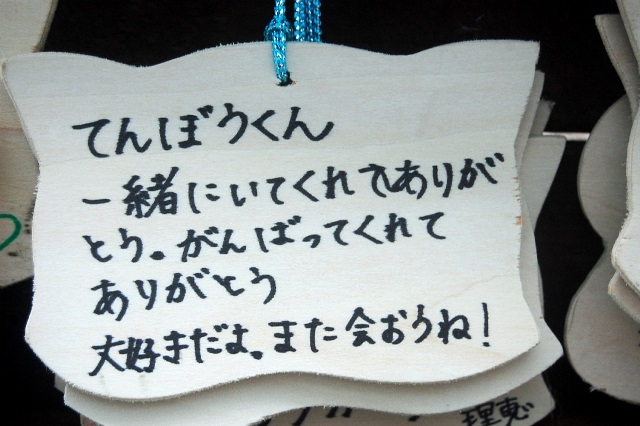 てんぼうくん
一緒にいてくれてありが
とう。がんばってくれて
ありがとう
大好きだよ。また会おうね！
理恵